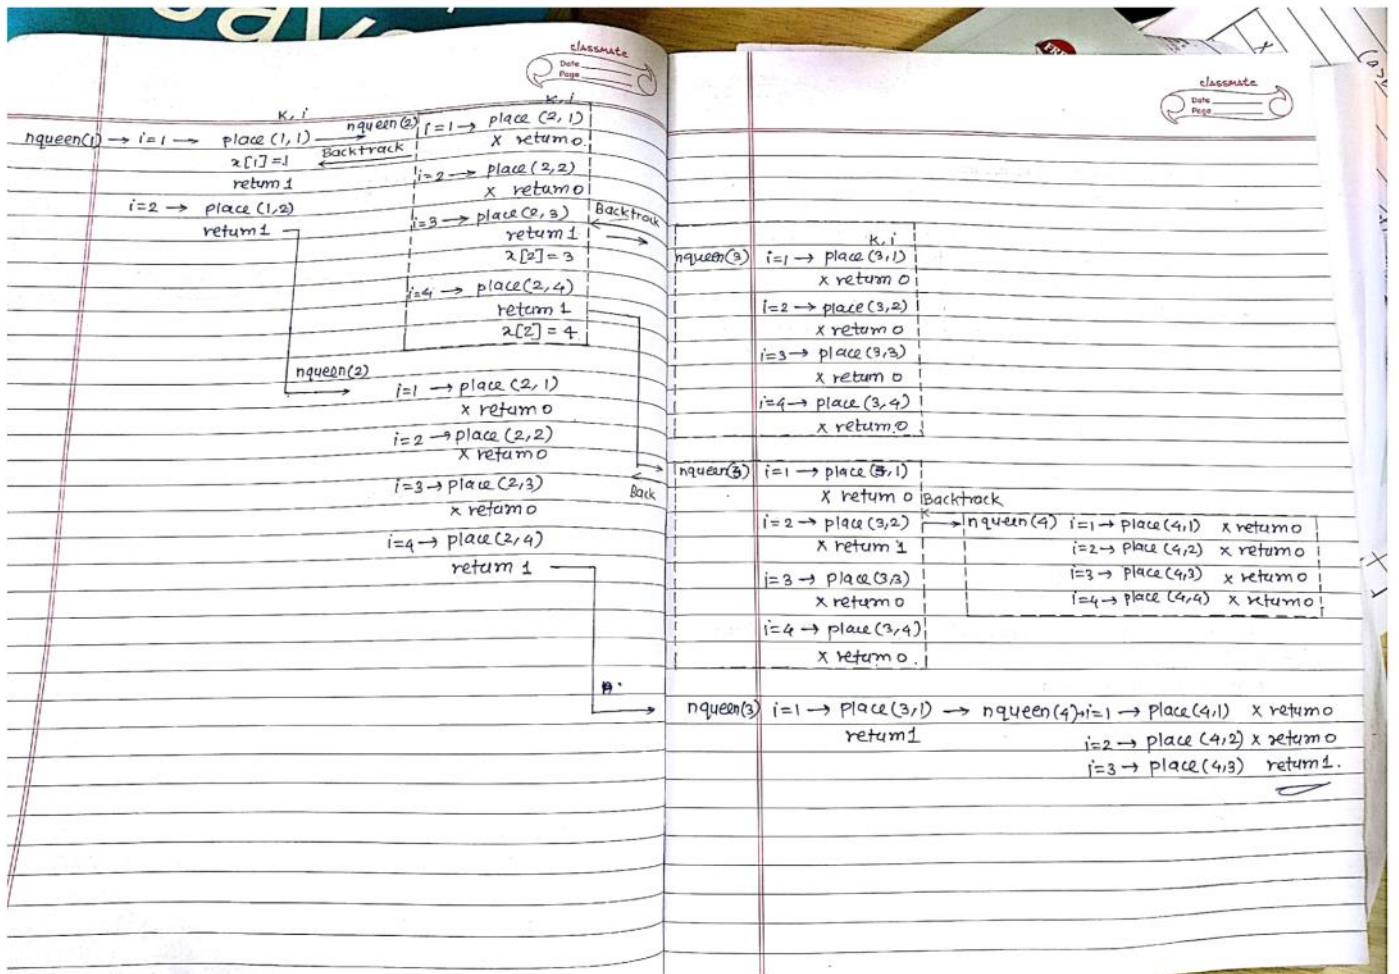 classmate
Date
Page
k, i
k, i
nqueen(1) → i=1 → place (1,1) nqueen(2) i=1 → place (2,1)
x[1]=1 Backtrack x return 0.
return 1 i=2 → place (2,2)
x return 0
i=2 → place (1,2) i=3 → place (2,3) Backtrack
return 1 return 1 →
x[2]=3
i=4 → place (2,4)
return 1
x[2]=4
nqueen(2)
i=1 → place (2,1)
x return 0
i=2 → place (2,2)
x return 0
i=3 → place (2,3)
x return 0
i=4 → place (2,4)
return 1
Back
classmate
Date
Page
k, i
nqueen(3) i=1 → place (3,1)
x return 0
i=2 → place (3,2)
x return 0
i=3 → place (3,3)
x return 0
i=4 → place (3,4)
x return 0
nqueen(3) i=1 → place (3,1)
x return 0 Backtrack
i=2 → place (3,2) → nqueen(4) i=1 → place (4,1) x return 0
x return 1 i=2 → place (4,2) x return 0
i=3 → place (3,3) i=3 → place (4,3) x return 0
x return 0 i=4 → place (4,4) x return 0
i=4 → place (3,4)
x return 0.
nqueen(3) i=1 → place (3,1) → nqueen(4) → i=1 → place (4,1) x return 0
return 1 i=2 → place (4,2) x return 0
i=3 → place (4,3) return 1.